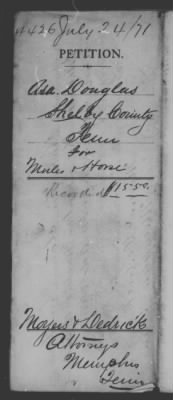 4426 July 24/71
PETITION.
Asa Douglas
Shelby County
Tenn
for
Mules & Horse
Recorded $1550.
Moyers & Dedrick
Attorneys
Memphis
Tenn